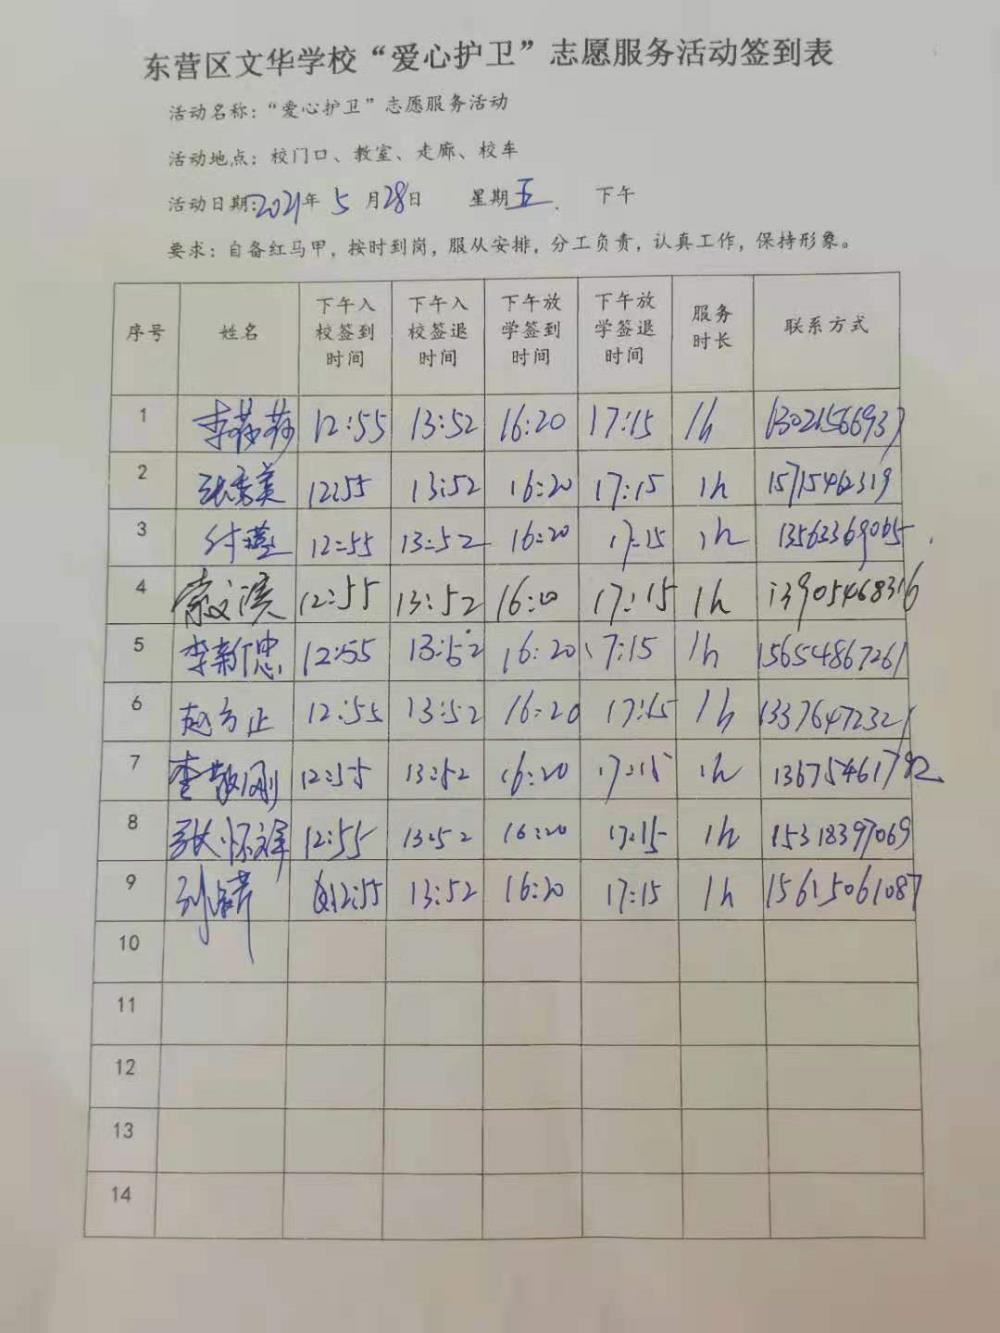 东营区文华学校“爱心护卫”志愿服务活动签到表
活动名称：“爱心护卫”志愿服务活动
活动地点：校门口、教室、走廊、校车
活动日期：2021年 5 月28日 星期五 下午
要求：自备红马甲，按时到岗，服从安排，分工负责，认真工作，保持形象。
序号 姓名 下午入校签到时间 下午入校签退时间 下午放学签到时间 下午放学签退时间 服务时长 联系方式
1 李莎莎 12:55 13:52 16:20 17:15 1h 13021566937
2 张秀美 12:55 13:52 16:20 17:15 1h 15715462319
3 付莹 12:55 13:52 16:20 17:15 1h 13562369065
4 12:55 13:52 16:20 17:15 1h 13905468316
5 李新忠 12:55 13:52 16:20 17:15 1h 15654867261
6 赵方正 12:55 13:52 16:20 17:15 1h 13376472321
7 李敬刚 12:55 13:52 16:20 17:15 1h 13675461782
8 张怀祥 12:55 13:52 16:20 17:15 1h 15318397069
9 12:55 13:52 16:20 17:15 1h 15615061087
10
11
12
13
14